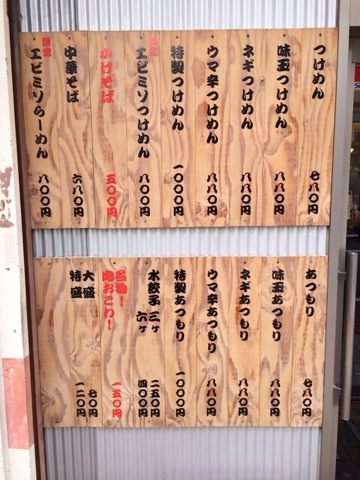 つけめん 七八〇円
味玉つけめん 八八〇円
ネギつけめん 八八〇円
ウマ辛つけめん 八八〇円
特製つけめん 一〇〇〇円
エビミソつけめん 八〇〇円
かけそば 五〇〇円
中華そば 六八〇円
限定 エビミソらーめん 八〇〇円
あつもり 七八〇円
味玉あつもり 八八〇円
ネギあつもり 八八〇円
ウマ辛あつもり 八八〇円
特製あつもり 一〇〇〇円
水餃子 三ヶ 二五〇円
六ヶ 四〇〇円
名物！
肉おこわ！ 一五〇円
大盛 七〇円
特盛 一二〇円